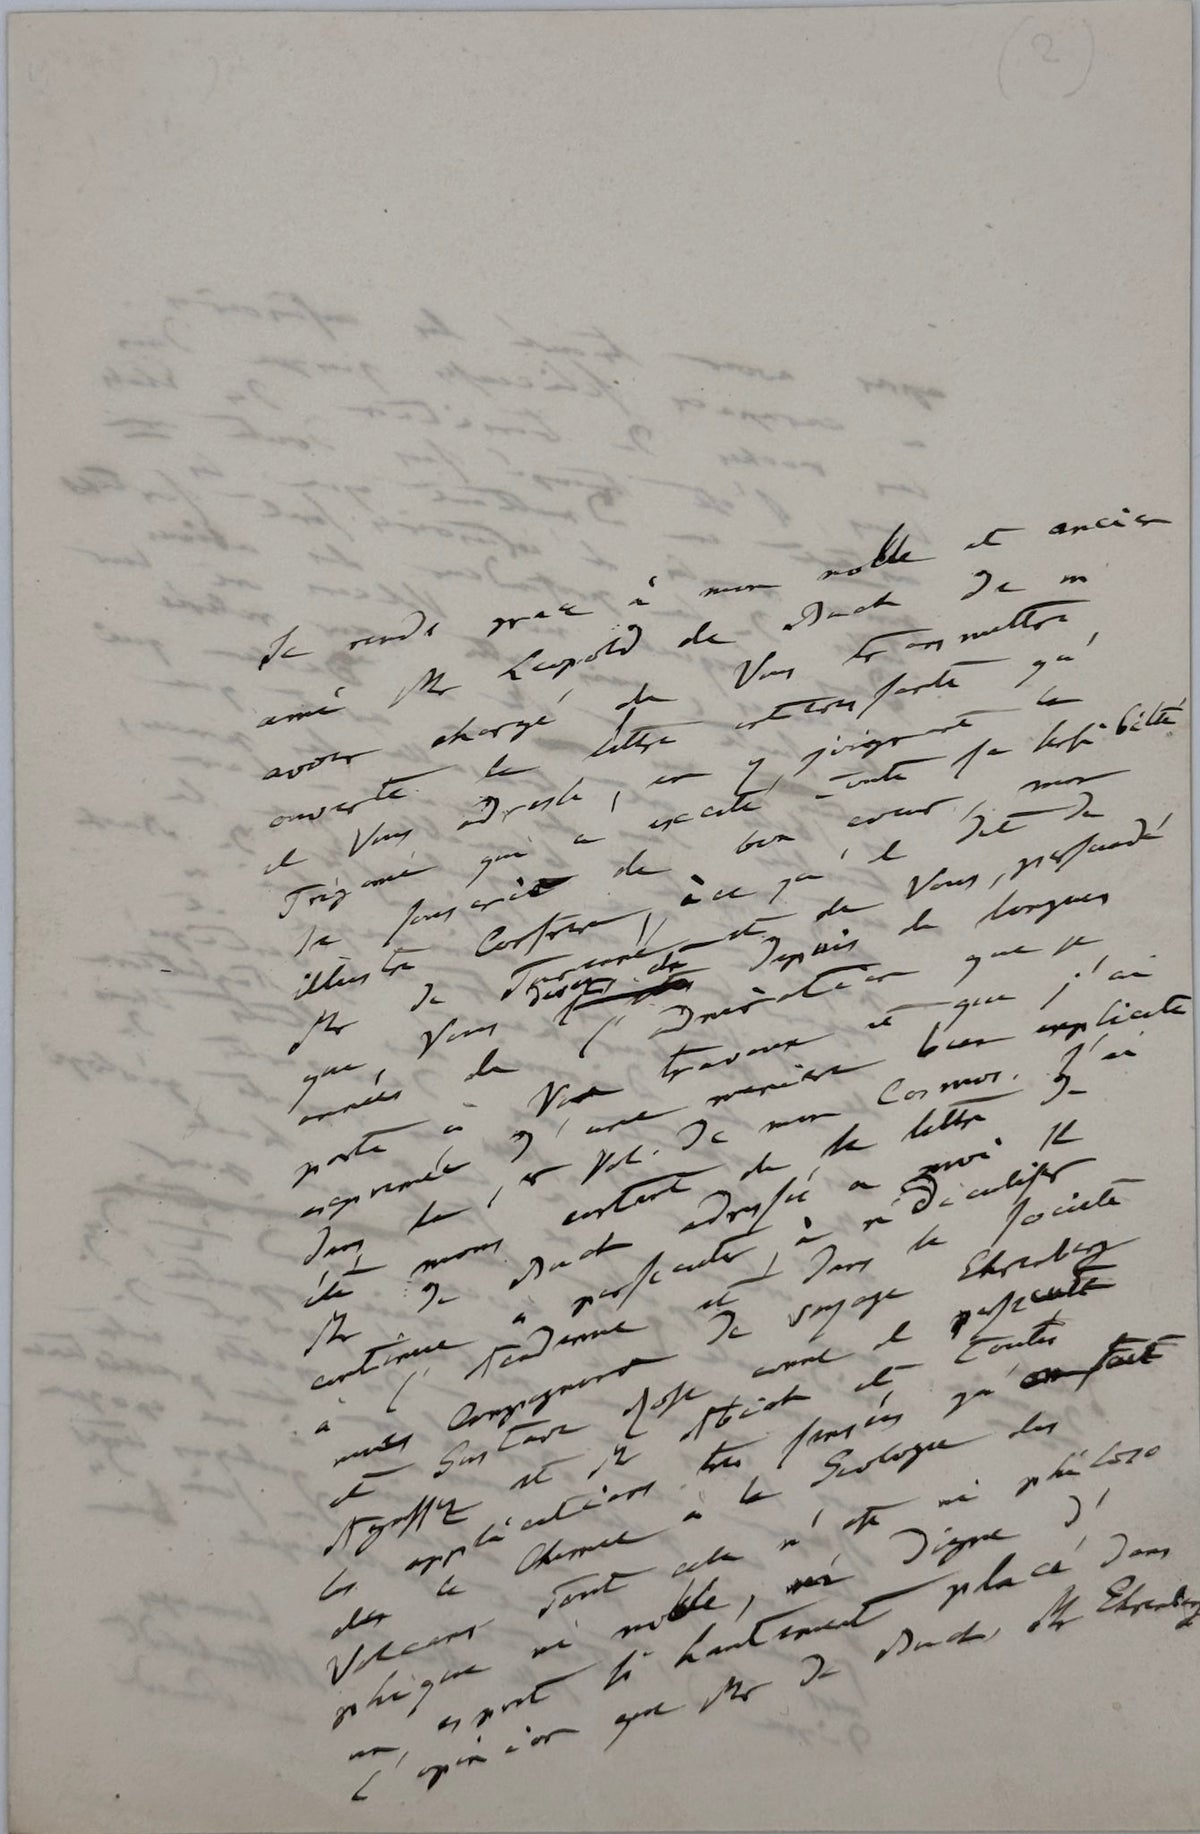 (2)
Je rends grace à mon noble et ancien
ami Mr Leopold de Buch de m'
avoir chargé de Vous transmettre
ouverte la lettre interessante qu'
il Vous adresse, en y joignant le
qui a excité toute sa sensibilité
Je souscris de bon coeur, mon
illustre Confrère, à ce qu'il dit de
Mr de et de Vous, persuadé
que, Vous depuis de longues
années de l'admiration que je
porte à Vos travaux et que j'ai
exprimée d'une manière bien explicite
dans le 1er Vol. de mon Cosmos. J'ai
été moins content de la lettre de
Mr de Buch adressée à moi. Il
continue à persecuter, à ridiculiser
à l'Academie et dans la Société
mes Compagnons de voyage Ehrenberg
et Gustave Rose comme il persecute
Agassiz et Mr Abich et toutes
les applications très sensées qu'on fait
de la Chimie à la Géologie des
Volcans. Tout cela n'est ni philoso
phique ni noble, ni digne d'
un esprit si hautement placé dans
l'opinion que Mr de Buch. Mr Ehrenberg